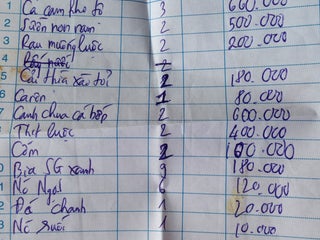 1 Cá cam kho tộ 3 660.000
2 Sườn non nướng 2 500.000
3 Rau muống luộc 2 200.000
4 2
5 Cải thìa xào tỏi 2 180.000
6 Cà ròn 1 80.000
7 Canh chua cá bớp 2 600.000
8 Thịt luộc 2 400.000
Cơm 2 100.000
Bia SG xanh 9 180.000
1 Nó Ngọt 6 120.000
2 Đá chanh 1 20.000
3 Nó suối 1 10.000